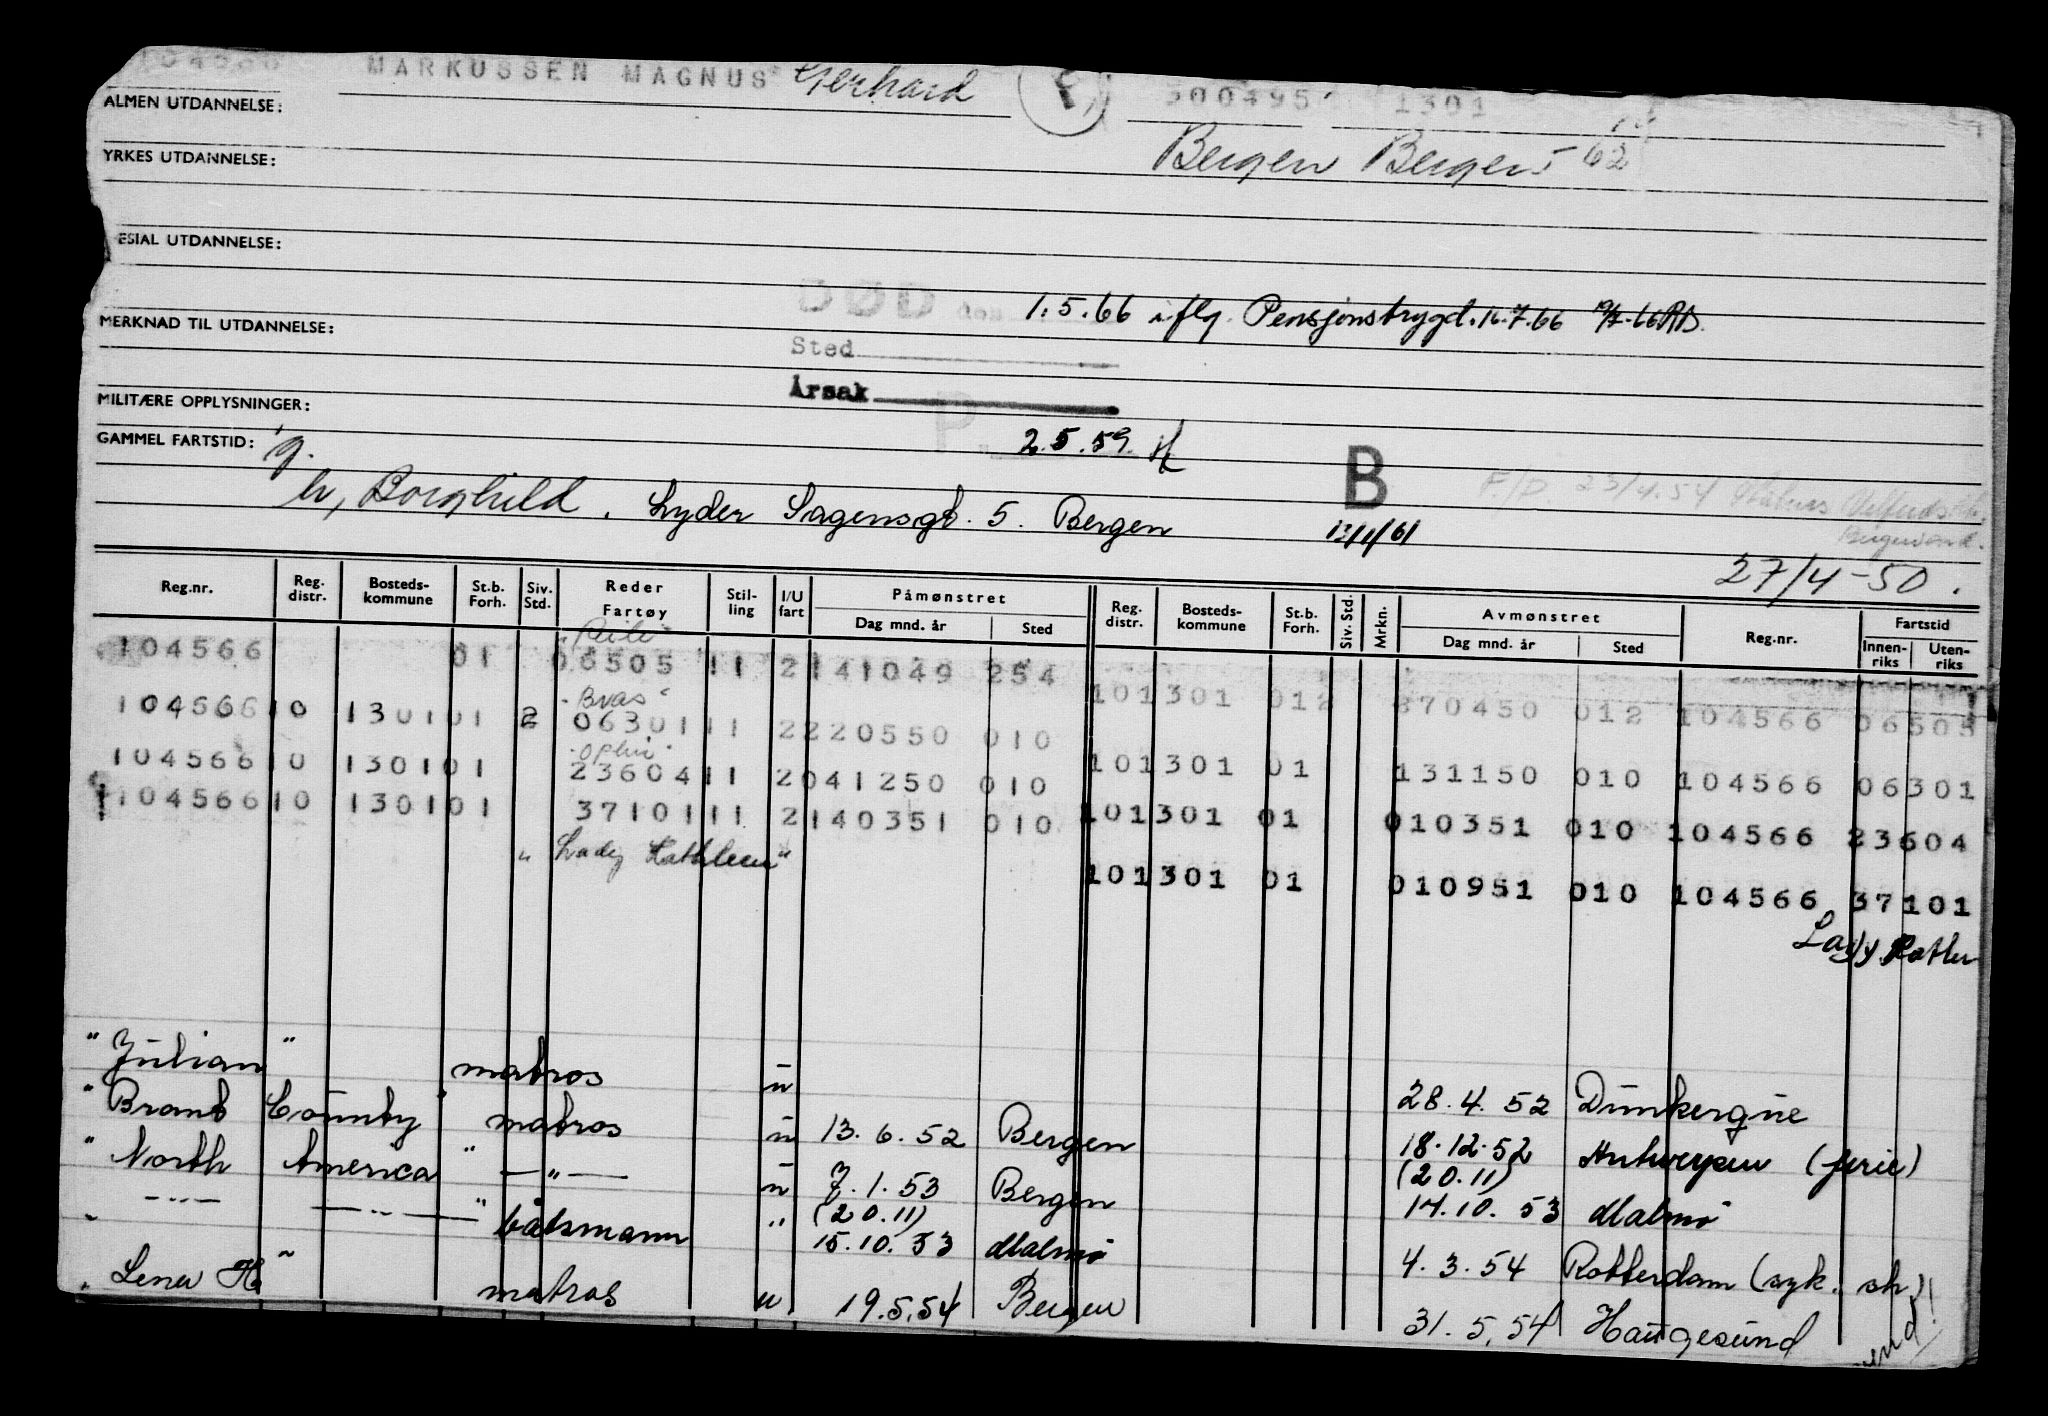 MARKUSSEN MAGNUS Gerhard 300495 1301
ALMEN UTDANNELSE:
Bergen Bergen 62
YRKES UTDANNELSE:
ESIAL UTDANNELSE:
DØD den 1.5.66 iflg. Pensjonstrygd. 16.7.66
MERKNAD TIL UTDANNELSE:
Sted
Årsak
MILITÆRE OPPLYSNINGER:
GAMMEL FARTSTID: g.
P. 2.5.59
B
h, Borghild. Lyder Sagensgt. 5. Bergen
F./p. 23/4.54
12/1/61
27/4-50.
Reg.nr. Reg. distr. Bosteds-kommune St.b. Forh. Siv. Std. Reder Fartøy Stil-ling I/U fart Påmønstret Dag mnd. år Sted Reg. distr. Bosteds-kommune St.b. Forh. Siv. Std. Mrkn. Avmønstret Dag mnd. år Sted Reg.nr. Fartstid Innen-riks Uten-riks
104566 01 06505 11 2 141049 254
101301 012 270450 012 104566 06505
"Bras"
104566 10 1301 01 2 06301 11 2 220550 010
101301 01 131150 010 104566 06301
"Ophir"
104566 10 1301 01 23604 11 2 041250 010
101301 01 010351 010 104566 23604
104566 10 1301 01 37101 11 2 140351 010
"Lady Kathleen"
101301 01 010951 010 104566 37101
Lady Kathle
"Julian" matros u 28.4.52 Dunkerque
"Brant County" matros u 13.6.52 Bergen 18.12.52 Antwerpen (ferie)
(20.11)
"North America" —"— u 7.1.53 Bergen 14.10.53 Malmø
(20.11)
—"— —"— " båtsmann " 15.10.53 Malmø 4.3.54 Rotterdam (syk. sh)
"Lena H" matros u 19.5.54 Bergen 31.5.54 Haugesund
vend!